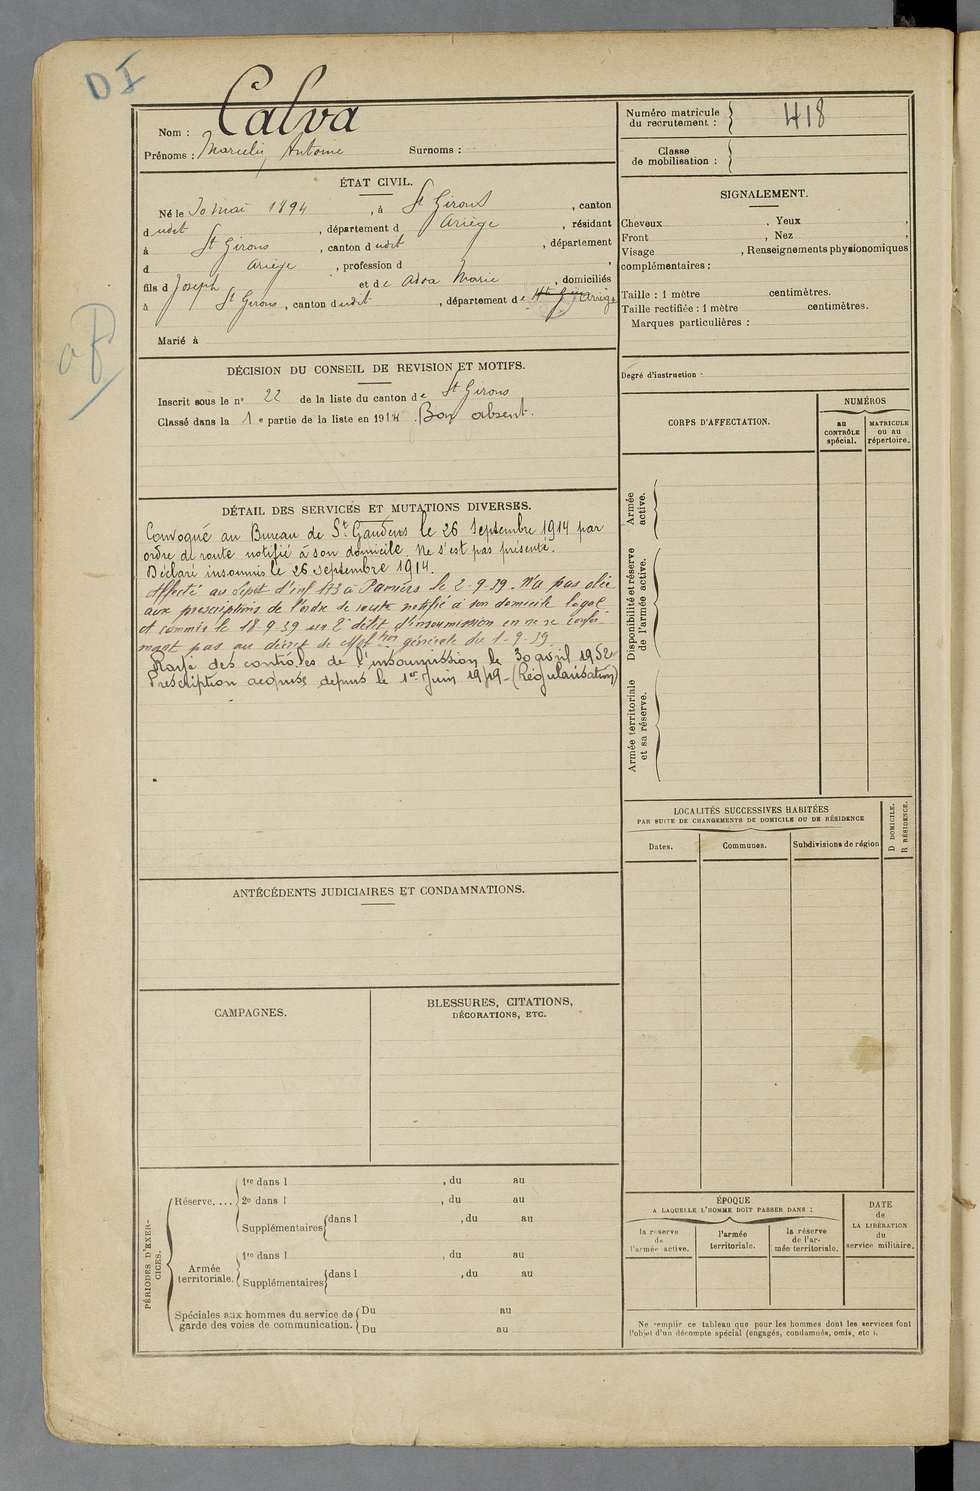 DI
Nom : Calva
Prénoms : Marcelin, Antoine Surnoms :
Numéro matricule du recrutement : 418
Classe de mobilisation :
ÉTAT CIVIL.
Né le 30 mai 1894, à St Girons, canton
dudit, département d Ariège, résidant
à St Girons, canton dudit, département
d Ariège, profession d
fils d Joseph et de Adoa Marie, domiciliés
à St Girons, canton dudit, département de Hte G Ariège
Marié à
SIGNALEMENT.
Cheveux , Yeux ,
Front , Nez ,
Visage , Renseignements physionomiques
complémentaires :
Taille : 1 mètre centimètres.
Taille rectifiée : 1 mètre centimètres.
Marques particulières :
Degré d'instruction .
DÉCISION DU CONSEIL DE REVISION ET MOTIFS.
Inscrit sous le n° 22 de la liste du canton de St Girons
Classé dans la 1e partie de la liste en 1914. Bon absent.
DÉTAIL DES SERVICES ET MUTATIONS DIVERSES.
Convoqué au Bureau de St Gaudens le 26 Septembre 1914 par
ordre de route notifié à son domicile. Ne s'est pas présenté.
Déclaré insoumis le 26 septembre 1914.
Affecté au Dépôt d'inf 173 à Pamiers le 2-9-39. N'a pas obéi
aux prescriptions de l'ordre de route notifié à son domicile légal.
et commis le 18-9-39 un 2e délit d'insoumission en ne se confor-
mant pas au décret de Mob.tion générale du 1-9-39.
Rayé des contrôles de l'insoumission le 30 avril 1952
Prescription acquise depuis le 1er Juin 1949 - (Régularisation)
CORPS D'AFFECTATION.
NUMÉROS
au CONTRÔLE spécial.
MATRICULE ou au répertoire.
Armée active.
Disponibilité et réserve de l'armée active.
Armée territoriale et sa réserve.
LOCALITÉS SUCCESSIVES HABITÉES
PAR SUITE DE CHANGEMENTS DE DOMICILE OU DE RÉSIDENCE
D DOMICILE.
R RÉSIDENCE.
Dates.
Communes.
Subdivisions de région
ANTÉCÉDENTS JUDICIAIRES ET CONDAMNATIONS.
CAMPAGNES.
BLESSURES, CITATIONS,
DÉCORATIONS, ETC.
PÉRIODES D'EXERCICES.
Réserve....
1re dans l , du au
2e dans l , du au
Supplémentaires dans l , du au
Armée territoriale.
1re dans l , du au
Supplémentaires dans l , du au
Spéciales aux hommes du service de
garde des voies de communication.
Du au
Du au
ÉPOQUE
A LAQUELLE L'HOMME DOIT PASSER DANS :
la réserve de l'armée active.
l'armée territoriale.
la réserve de l'armée territoriale.
DATE
de
LA LIBÉRATION
du
service militaire.
Ne remplir ce tableau que pour les hommes dont les services font
l'objet d'un décompte spécial (engagés, condamnés, omis, etc ).